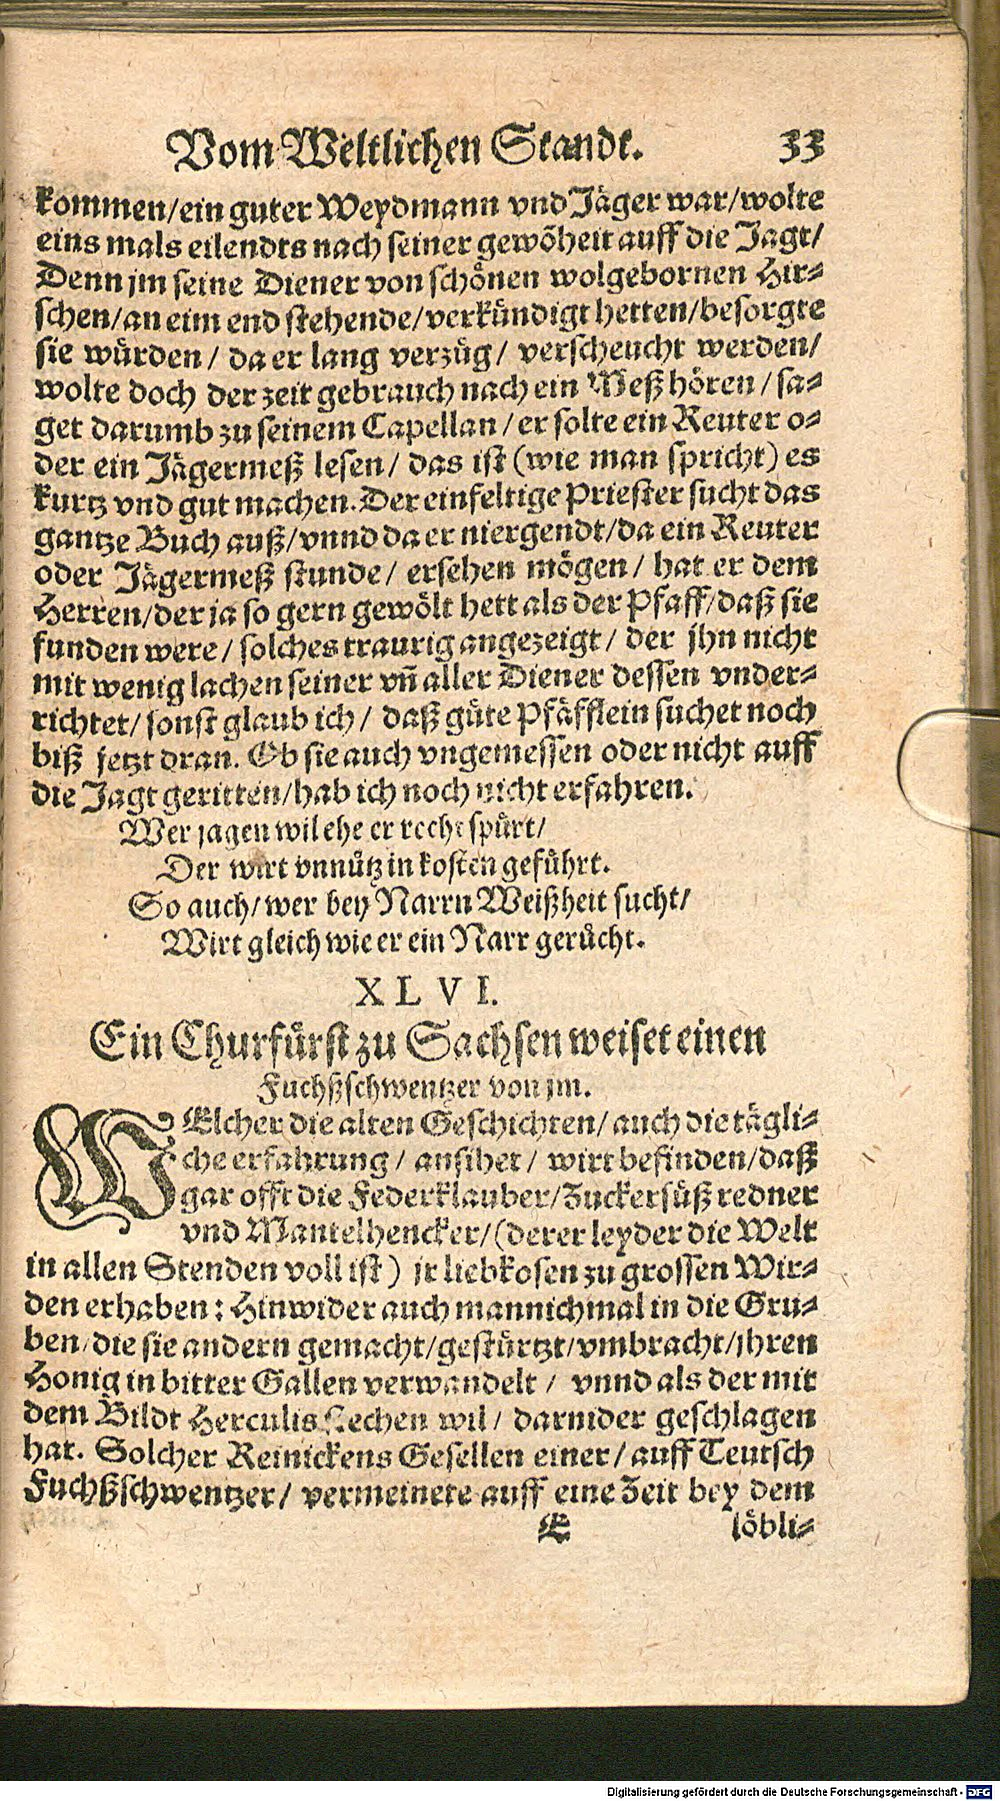 Vom Weltlichen Standt. 33
kommen/ein guter Weydmann vnd Jäger war/wolte
eins mals eilendts nach seiner gewõheit auff die Jagt/
Denn jm seine Diener von schönen wolgebornen Hir⸗
schen/an eim end stehende/verkündigt hetten/besorgte
sie würden/ da er lang verzüg/ verscheucht werden/
wolte doch der zeit gebrauch nach ein Meß hören/ sa⸗
get darumb zu seinem Capellan/ er solte ein Reuter o⸗
der ein Jägermeß lesen/ das ist (wie man spricht) es
kurtz vnd gut machen. Der einfeltige Priester sucht das
gantze Buch auß/vnnd da er niergendt/da ein Reuter
oder Jägermeß stunde/ ersehen mögen/ hat er dem
Herren/der ja so gern gewölt hett als der Pfaff/daß sie
funden were/ solches traurig angezeigt/ der jhn nicht
mit wenig lachen seiner vñ aller Diener dessen vnder⸗
richtet/ sonst glaub ich/ daß gůte Pfäfflein suchet noch
biß jetzt dran. Ob sie auch vngemessen oder nicht auff
die Jagt geritten/hab ich noch nicht erfahren.
Wer jagen wil ehe er recht spürt/
Der wirt vnnütz in kosten geführt.
So auch/wer bey Narrn Weißheit sucht/
Wirt gleich wie er ein Narr gerücht.
XLVI.
Ein Churfürst zu Sachsen weiset einen
Fuchßschwentzer von jm.
WElcher die alten Geschichten/ auch die tägli⸗
che erfahrung/ ansihet/ wirt befinden/daß
gar offt die Federklauber/Zuckersüß redner
vnd Mantelhencker/(derer leyder die Welt
in allen Stenden voll ist) jr liebkosen zu grossen Wir⸗
den erhaben: Hinwider auch mannichmal in die Gru⸗
ben/die sie andern gemacht/gestürtzt/vmbracht/jhren
Honig in bitter Gallen verwandelt/ vnnd als der mit
dem Bildt Herculis stechen wil/ darnider geschlagen
hat. Solcher Reinickens Gesellen einer/ auff Teutsch
Fuchßschwentzer/ vermeinete auff eine Zeit bey dem
E löbli⸗
Digitalisierung gefördert durch die Deutsche Forschungsgemeinschaft - DFG